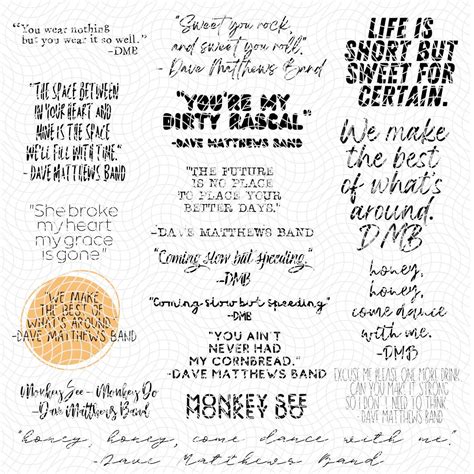 "You wear nothing
but you wear it so well."
-DMB
"THE SPACE BETWEEN
IN YOUR HEART AND
MINE IS THE SPACE
WE'LL FILL WITH TIME."
- DAVE MATTHEWS BAND
"She broke
my heart
my grace
is gone"
"WE MAKE
THE BEST OF
WHAT'S AROUND"
-DAVE MATTHEWS BAND
Monkey See - Monkey Do
-Dave Matthews Band
"Sweet you rock
and sweet you roll."
- Dave Matthews Band
"YOU'RE MY
DIRTY RASCAL"
-DAVE MATTHEWS BAND
"THE FUTURE
IS NO PLACE
TO PLACE YOUR
BETTER DAYS."
-DAVE MATTHEWS BAND
"Coming slow but speeding."
-DMB
"Coming slow but speeding"
-DMB
"YOU AIN'T
NEVER HAD
MY CORNBREAD."
- DAVE MATTHEWS BAND
MONKEY SEE
MONKEY DO
LIFE IS
SHORT BUT
SWEET FOR
CERTAIN.
We make
the best
of what's
around.
DMB
honey,
honey,
come dance
with me.
-DMB
EXCUSE ME PLEASE ONE MORE DRINK
CAN YOU MAKE IT STRONG
SO I DON'T NEED TO THINK
-DAVE MATTHEWS BAND
"honey, honey, come dance with me."
-Dave Matthews Band